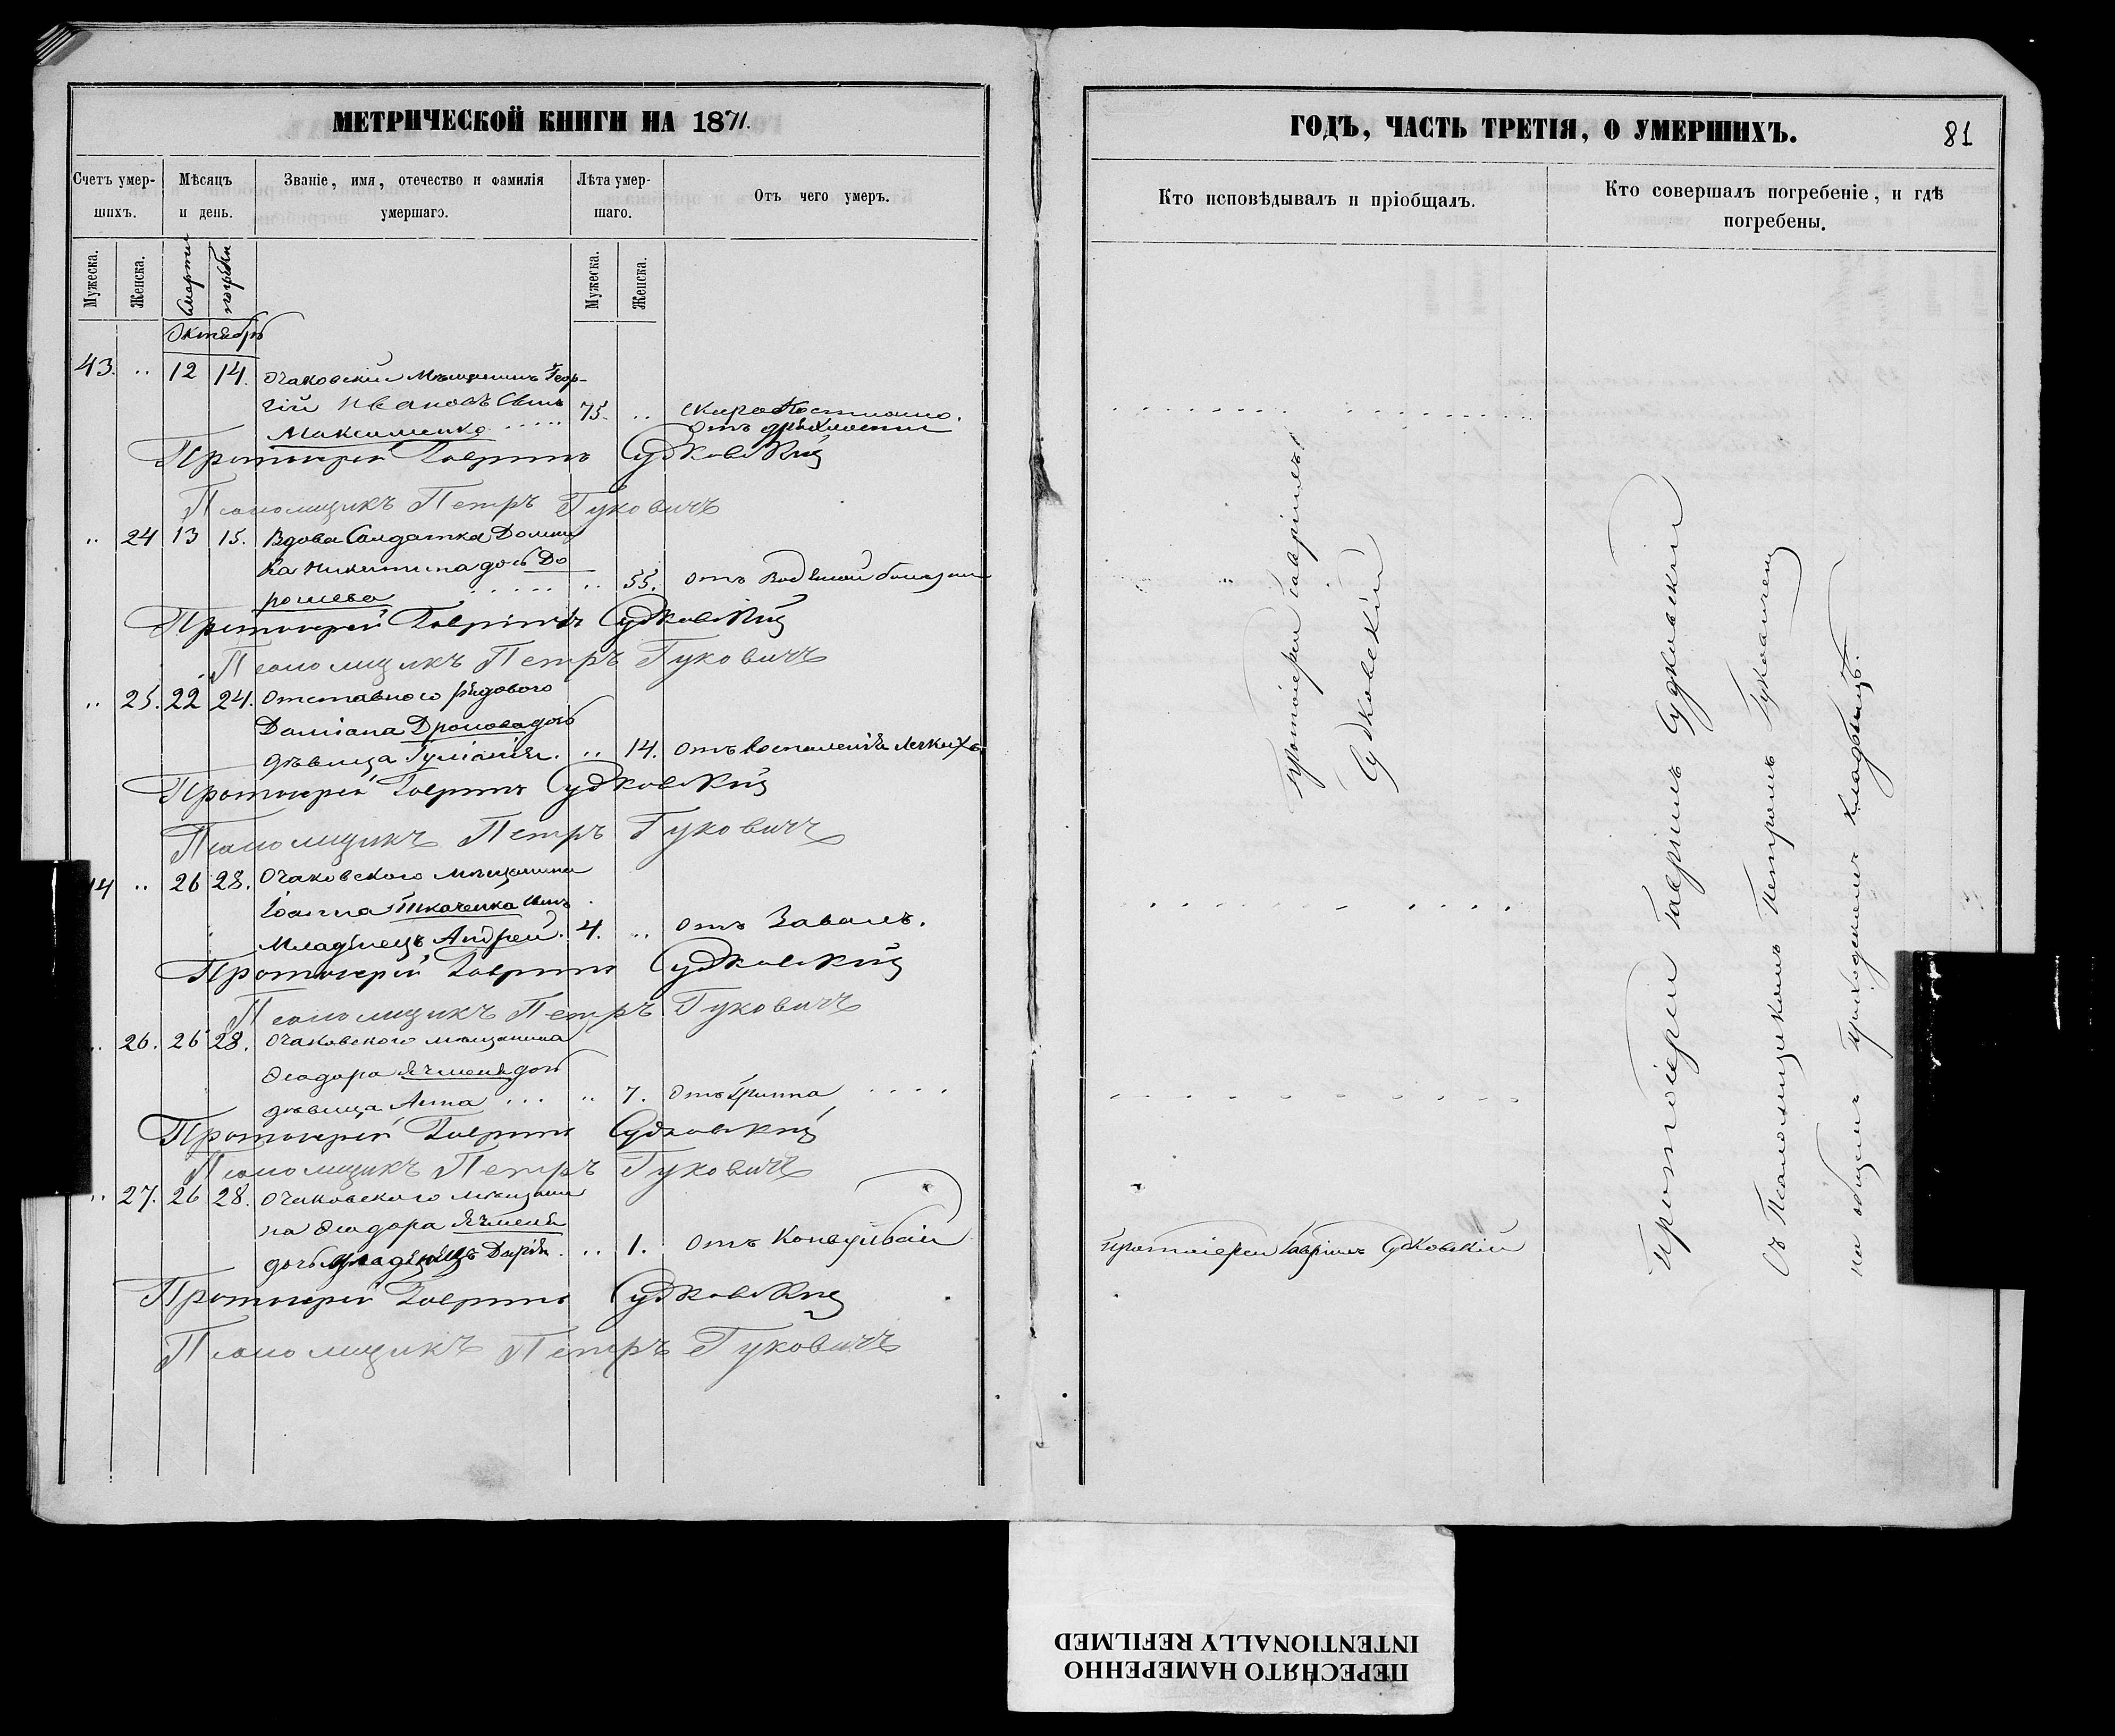 МЕТРИЧЕСКОЙ КНИГИ НА 1871.
Счетъ умер-
шихъ.
Мѣсяцъ
и день.
Званіе, имя, отечество и фамилія
умершаго.
Лѣта умер-
шаго.
Отъ чего умеръ.
Мужеска.
Женска.
Смерти
погребен
Мужеска.
Женска.
Октябрь
43. .. 12 14. Очаковскій Мѣщанинъ Геор-
гій Ивановъ Сынъ 75. .. Скоропостижно.
Максименко ..... отъ дряхлости
Протоіерей Гавріилъ Судковскій
Псаломщикъ Петръ Гуковичъ
.. 24 13 15. Вдова Солдатка Домни
ка Никитина дочь До
рошева ..... .. 55. отъ Водяной болезни
Протоіерей Гавріилъ Судковскій
Псаломщикъ Петръ Гуковичъ
.. 25. 22 24. Отставного рядового
Даміана Дронова дочь
дѣвица Іуліанія. .. 14. Отъ воспаленія легкихъ
Протоіерей Гавріилъ Судковскій
Псаломщикъ Петръ Гуковичъ
44 .. 26 28. Очаковского мѣщанина
Іоанна Ткаченка Сынъ
Младенецъ Андрей. 4. .. отъ Завалъ.
Протоіерей Гавріилъ Судковскій
Псаломщикъ Петръ Гуковичъ
.. 26. 26 28. Очаковского мѣщанина
Ѳеодора Ячменя дочь
дѣвица Анна ... .. 7. отъ Гриппа ....
Протоіерей Гавріилъ Судковскій
Псаломщикъ Петръ Гуковичъ
.. 27. 26 28. Очаковского мѣщани
на Ѳеодора Ячменя
дочь младенецъ Дарія. .. 1. отъ Конвульсіи
Протоіерей Гавріилъ Судковскій
Псаломщикъ Петръ Гуковичъ
ГОДЪ, ЧАСТЬ ТРЕТІЯ, О УМЕРШИХЪ.
81
Кто исповѣдывалъ и пріобщалъ.
Кто совершалъ погребеніе, и гдѣ
погребены.
Протоіерей Гавріилъ
Судковскій
Протоіерей Гавріилъ Судковскій
Протоіерей Гавріилъ Судковскій
съ Псаломщикомъ Петромъ Гуковичемъ
на общемъ приходскомъ кладбищѣ.
ПЕРЕСНЯТО НАМЕРЕННО
INTENTIONALLY REFILMED